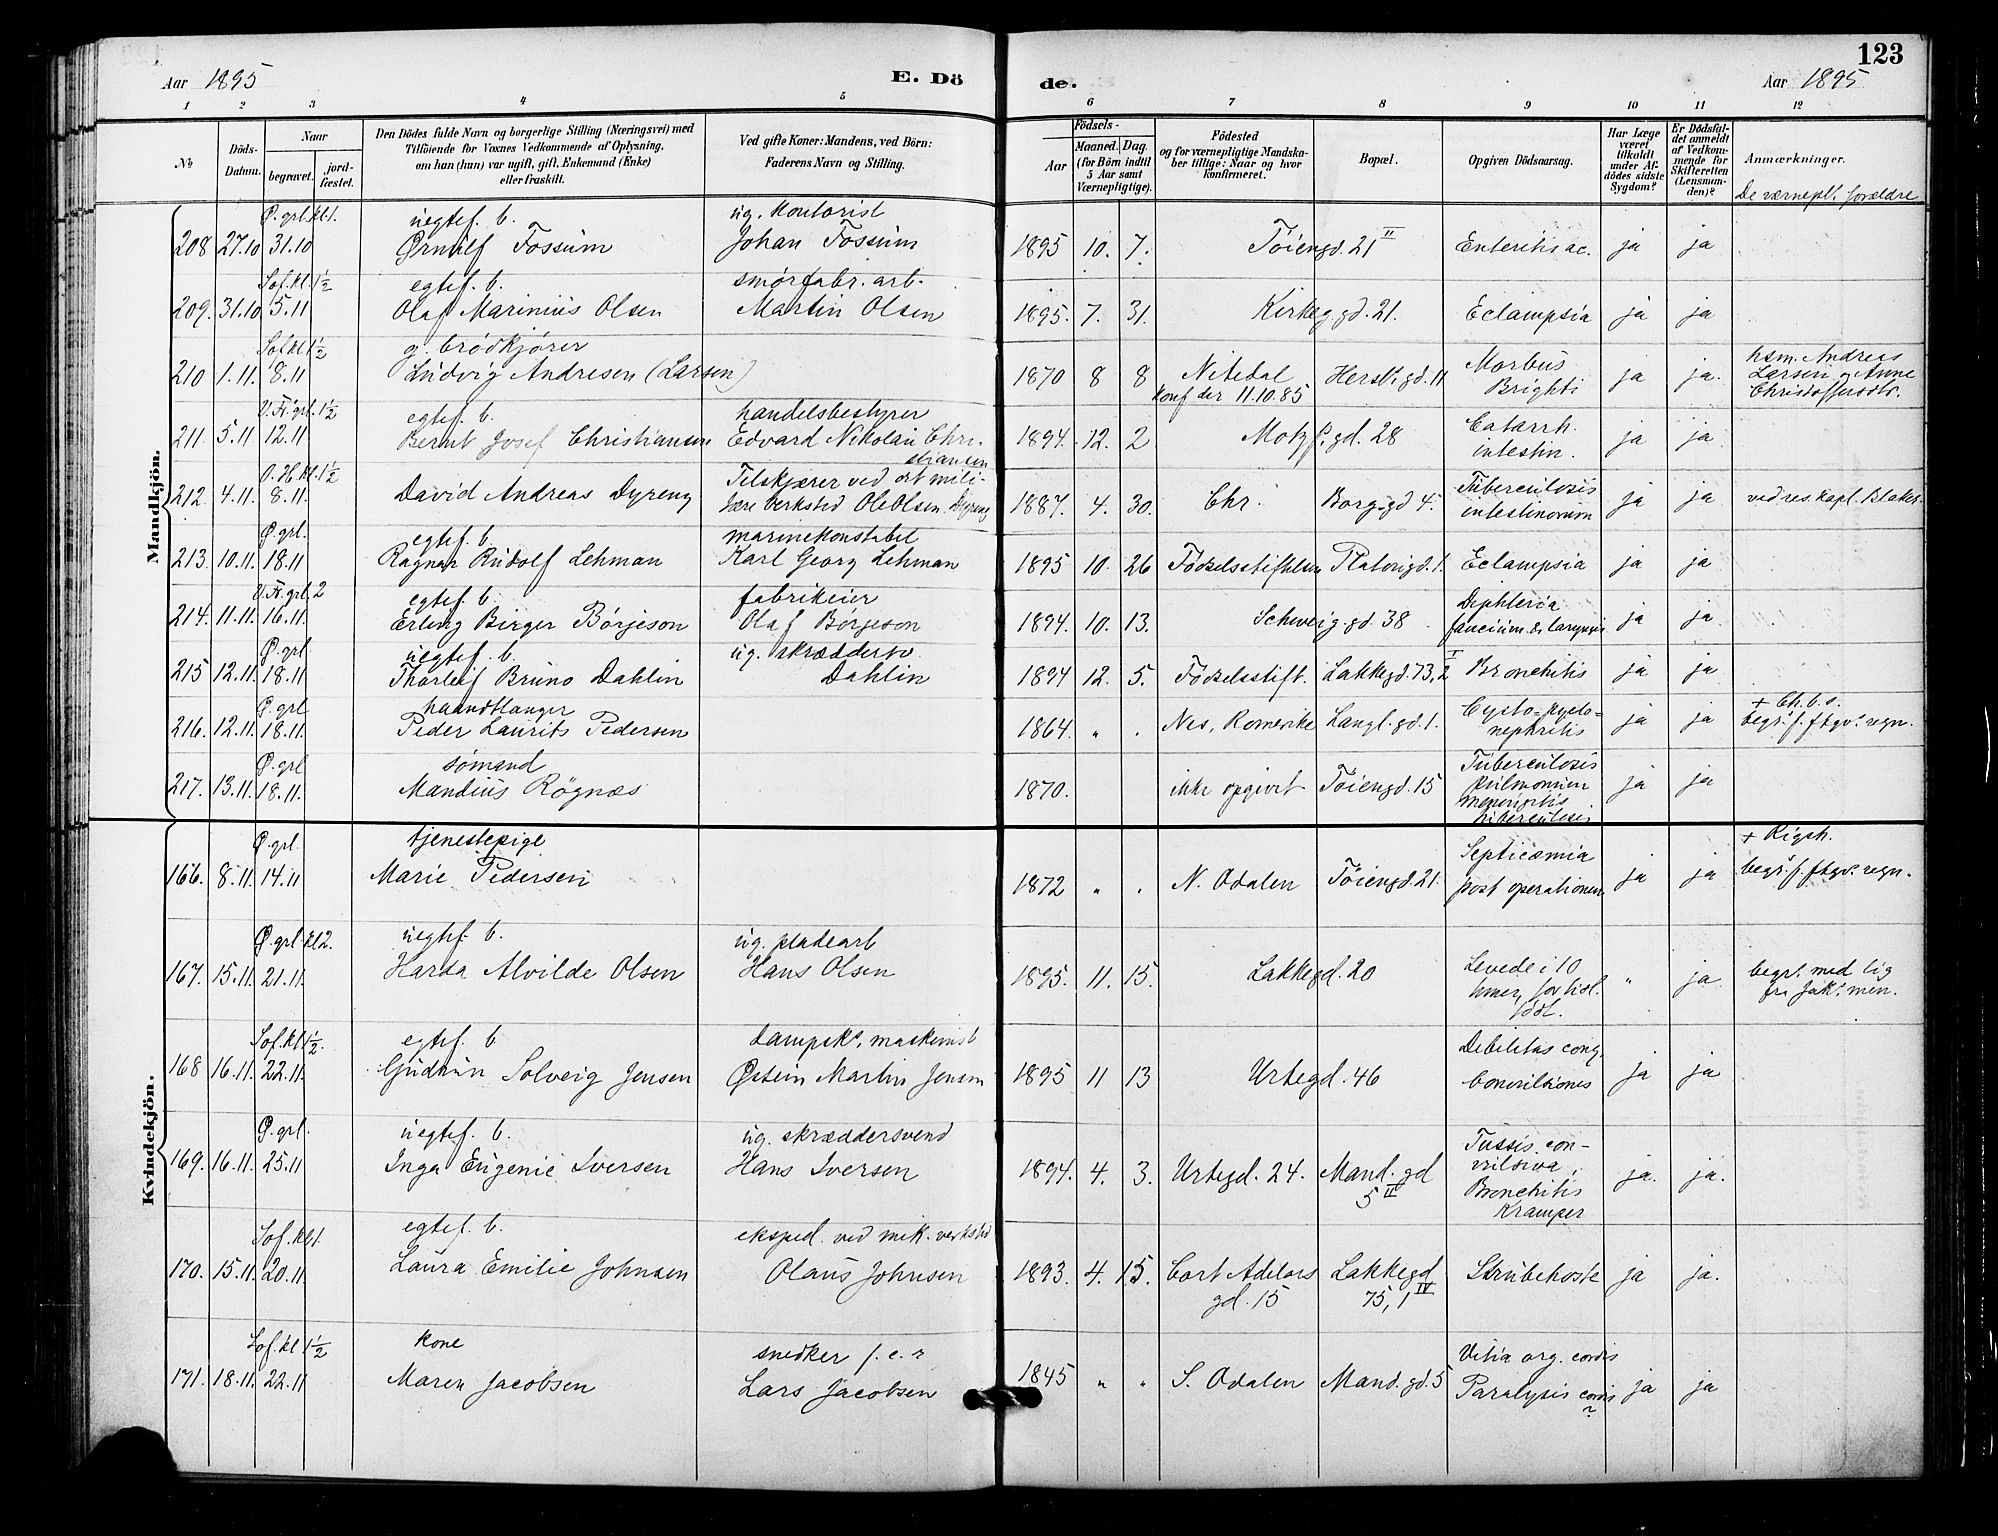 123
Aar 1895 E. Dö de. Aar 1895
1 2 3 4 5 6 7 8 9 10 11 12
№ Döds-Datum. Naar begravet. jord-fæstet. Den Dödes fulde Navn og borgerlige Stilling (Næringsvei) med Tilföiende for Voxnes Vedkommende af Oplysning, om han (hun) var ugift, gift, Enkemand (Enke) eller fraskilt. Ved gifte Koner: Mandens, ved Börn: Faderens Navn og Stilling. Födsels- Aar Maaned. Dag. (for Börn indtil 5 Aar samt Værnepligtige). Födested og for værnepligtige Mandska-ber tillige: Naar og hvor konfirmeret. Bopæl. Opgiven Dödsaarsag. Har Læge været tilkaldt under Af-dödes sidste Sygdom? Er Dödsfal-det anmeldt af Vedkom-mende for Skifteretten (Lensman-den)? Anmærkninger.
De værnepl. forældre
Mandkjön.
Ø. grl. kl. 1. uegtef. b. ug. kontorist
208 27.10 31.10 Ørnulf Fossum Johan Fossum 1895 10. 7. Töiengd. 21 II Enteritis ac. ja ja
Sof. kl. 1½ egtef. b. smørfabr. arb.
209. 31.10 5.11 Olaf Marinius Olsen Martin Olsen 1895. 7. 31. Kirkeg. gd. 21. Eclampsia ja ja
Sof. kl 1½ g. brödkjører
210 1.11. 8.11 Ludvig Andresen (Larsen) 1870 8 8 Nitedal Hersl. gd. 11 Morbus Brighti ja ja. hsm. Andreas Larsen o. Anne Christoffersdtr.
konf der 11.10.85
V. Fr. grl. 1½ egtef. b. handelsbestyrer
211. 5.11 12.11 Bernt Josef Christiansen Edvard Nikolai Chri-stiansen 1894. 12. 2 Motzf. gd. 28 Catarrh. intestin. ja ja
V. H. kl. 1½ Tilskjærer ved det mili-
212. 4.11. 8.11. David Andreas Dyreng tære verksted Ole Olsen Dyreng 1887. 4. 30. Chr. Borg. gd 4. Tuberculosis intestinorum ja ja ved res. kapl. Blakst.
Ø. grl. egtef. b. marinekonstabel
213. 10.11. 18.11 Ragnar Rudolf Lehman Karl Georg Lehman 1895 10. 26 Födselsstiftelsen Platousgd. 1. Eclampsia ja ja
V. Fr. grl. 2 egtef. b. fabrikeier
214. 11.11. 16.11. Erling Birger Börjeson Olaf Borjeson 1894. 10. 13. Schweig. gd. 38 Diphteria faucium & laryngis ja ja
Ø. grl. uegtef. b. ug. skræddersv.
215 12.11. 18.11. Thorleif Bruno Dahlin Dahlin 1894 12. 5. Födselsstift. Lakkegd. 73, 2 I Bronchitis ja ja
Ø. grl haandtlanger
216. 12.11. 18.11. Peder Laurits Pedersen 1864. " . Nes, Romerike Langl. gd. 1. Cysto-pyelo-nephritis ja ja + Ch. b. s. begr. f. ftgv. regn.
Ø. grl sömand
217. 13.11. 18.11. Mandius Rögnæs 1870. ikke opgivet Töiengd. 15 Tuberculosis pulmonum meningitis tuberculosis ja ja
Kvindekjön.
Ø. grl. tjenestepige
166. 8.11. 14.11 Marie Pedersen 1872 " . N. Odalen Töiengd. 21. Septicæmia post operationem ja ja + Rigsh. begr. f. ftgv. regn.
Ø. grl kl 2. uegtef. b. ug. pladearb
167. 15.11. 21.11. Harda Alvilde Olsen Hans Olsen 1895. 11. 15. Lakkegd. 20 Levede i 10 timer, for tidl. född. " ja begr. med lig fra Jak. men.
Sof. kl 1½. egtef. b dampsk. maskinist
168 16.11. 22.11. Gudrun Solveig Jensen Østein Martin Jensen 1895 11 13 Urtegd. 46 Debilitas cong. Convulsiones ja ja
Ø. grl. uegtef. b. ug. skræddersvend
169. 16.11. 25.11 Inga Eugenie Iversen Hans Iversen 1894. 4. 3. Urtegd. 24. Mand. gd 5 II Tussis con-vulsiva, Bronchitis Kramper ja. ja.
Sof. kl 1. egtef. b. eksped. ved mek. verksted
170. 15.11. 20.11. Laura Emilie Johnsen Olaus Johnsen 1893. 4. 15. Cort Adelers gd. 15 Lakkegd 75, 1 IV Strubehoste ja ja.
Sof. kl 1½ kone snedker f. e. r
171. 18.11. 22.11 Maren Jacobsen Lars Jacobsen 1845 " " S. Odalen Mand. gd. 5 Vitia org. cordis Paralysis cordis ? ja ja